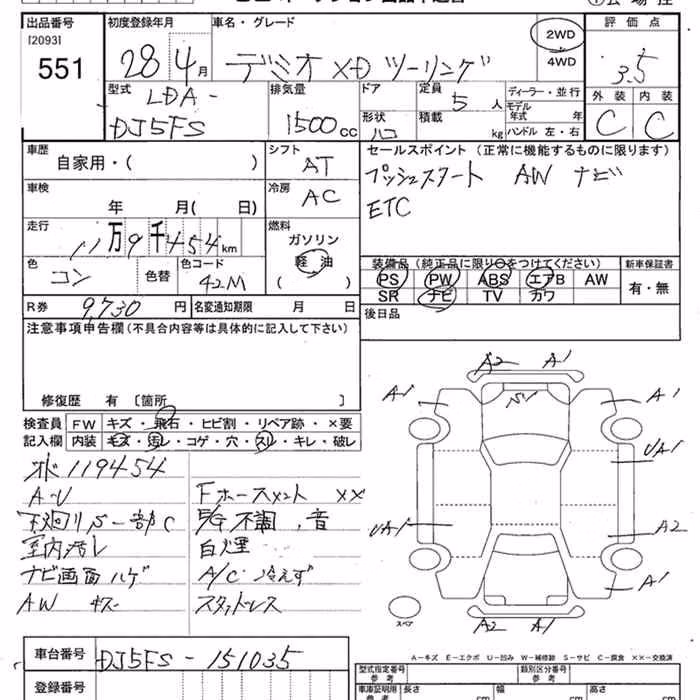 出品番号 初度登録年月 車名・グレード 2WD 評価点
[2093]
551 28 4月 デミオ XD ツーリング 4WD 3.5
型式 LDA- 排気量 ドア 定員 5人 ディーラー・並行 外装 内装
DJ5FS 1500cc 形状 積載 kg モデル年式 年 C C
ハンドル 左・右
車歴 シフト セールスポイント(正常に機能するものに限ります)
自家用・( ) AT プッシュスタート AW ナビ
車検 冷房 ETC
年 月( 日) AC
走行 燃料
11万9千454km ガソリン
色 色替 色コード 軽油 装備品(純正品に限り○をつけてください) 新車保証書
コン 42M ( ) PS PW ABS エアB AW 有・無
SR ナビ TV カワ
R券 9,730円 名変通知期限 月 日 後日品
注意事項申告欄(不具合内容等は具体的に記入して下さい)
修復歴 有 〔箇所 〕
検査員 FW キズ・飛石・ヒビ割・リペア跡・×要
記入欄 内装 キズ・汚レ・コゲ・穴・スレ・キレ・破レ
119454
A-U Fホースメント XX
下廻りS一部C E/G不調、音
室内汚レ 白煙
ナビ画面ハゲ A/C冷えず
AW キズ スタッドレス
A2 A1
A1 A1
UA1
UA1 A2
A1
A2 A1
スペア
車台番号 DJ5FS-151035
登録番号
A-キズ E-エクボ U-凹み W-補修跡 S-サビ C-腐食 ××-交換済
型式指定番号 参考 類別区分番号 参考
車庫証明用 参考 長さ cm 幅 cm 高さ cm